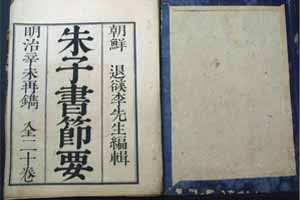 朝鮮 退溪李先生編輯
朱子書節要
明治辛未再鐫 全二十卷